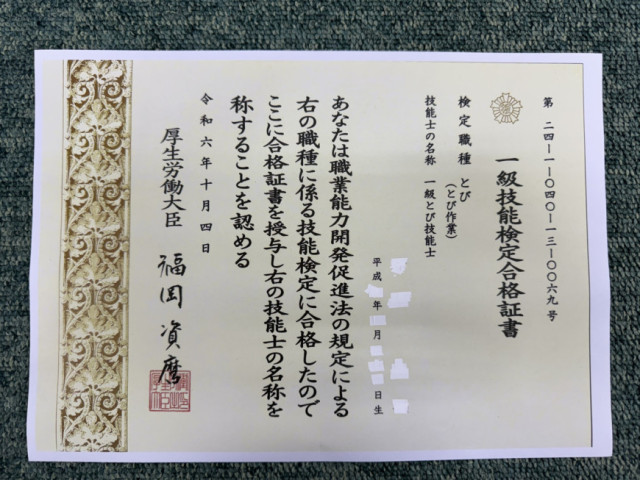 第 二四-一-〇四〇-一三-〇〇六九 号
一級技能検定合格証書
検定職種 とび
(とび作業)
技能士の名称 一級とび技能士
平成 年 月 日生
あなたは職業能力開発促進法の規定による
右の職種に係る技能検定に合格したので
ここに合格証書を授与し右の技能士の名称を
称することを認める
令和六年十月四日
厚生労働大臣 福岡資麿